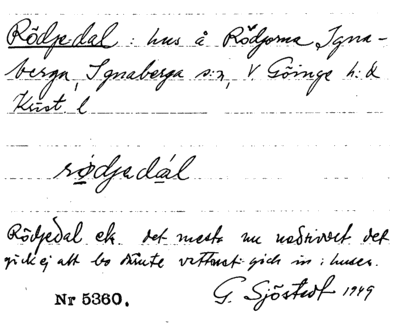 Rödjedal : hus å Rödjorna Igna-
berga, Ignaberga s:n, V Göinge h:d
Krist. l
rødjadál
Rödjedal är det mesta nu nedrivet det
gick ej att bo vattnet gick in i huset.
Nr 5360. G. Sjöstedt 1949